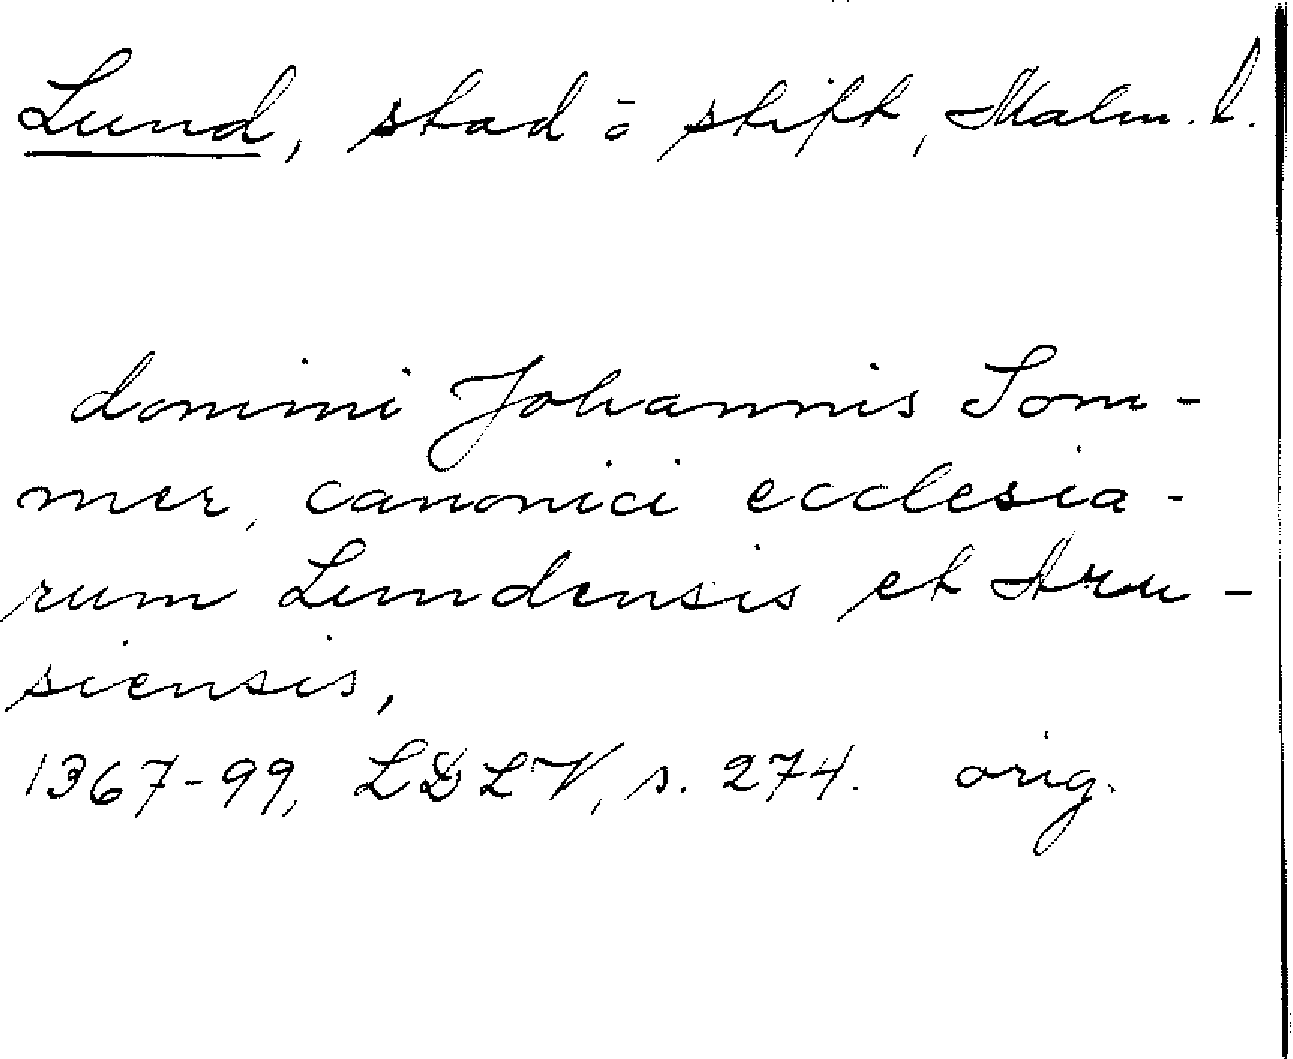 Lund, stad o stift, Malm. l.
domini Johannis Som-
mer, canonici ecclesia-
rum Lundensis et Aru-
siensis,
1367-99, LDLV, s. 274. orig.